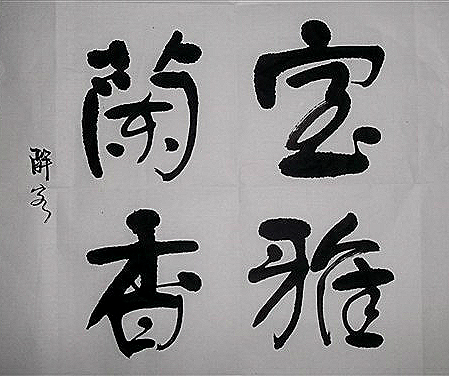 室雅
蘭香
醉客